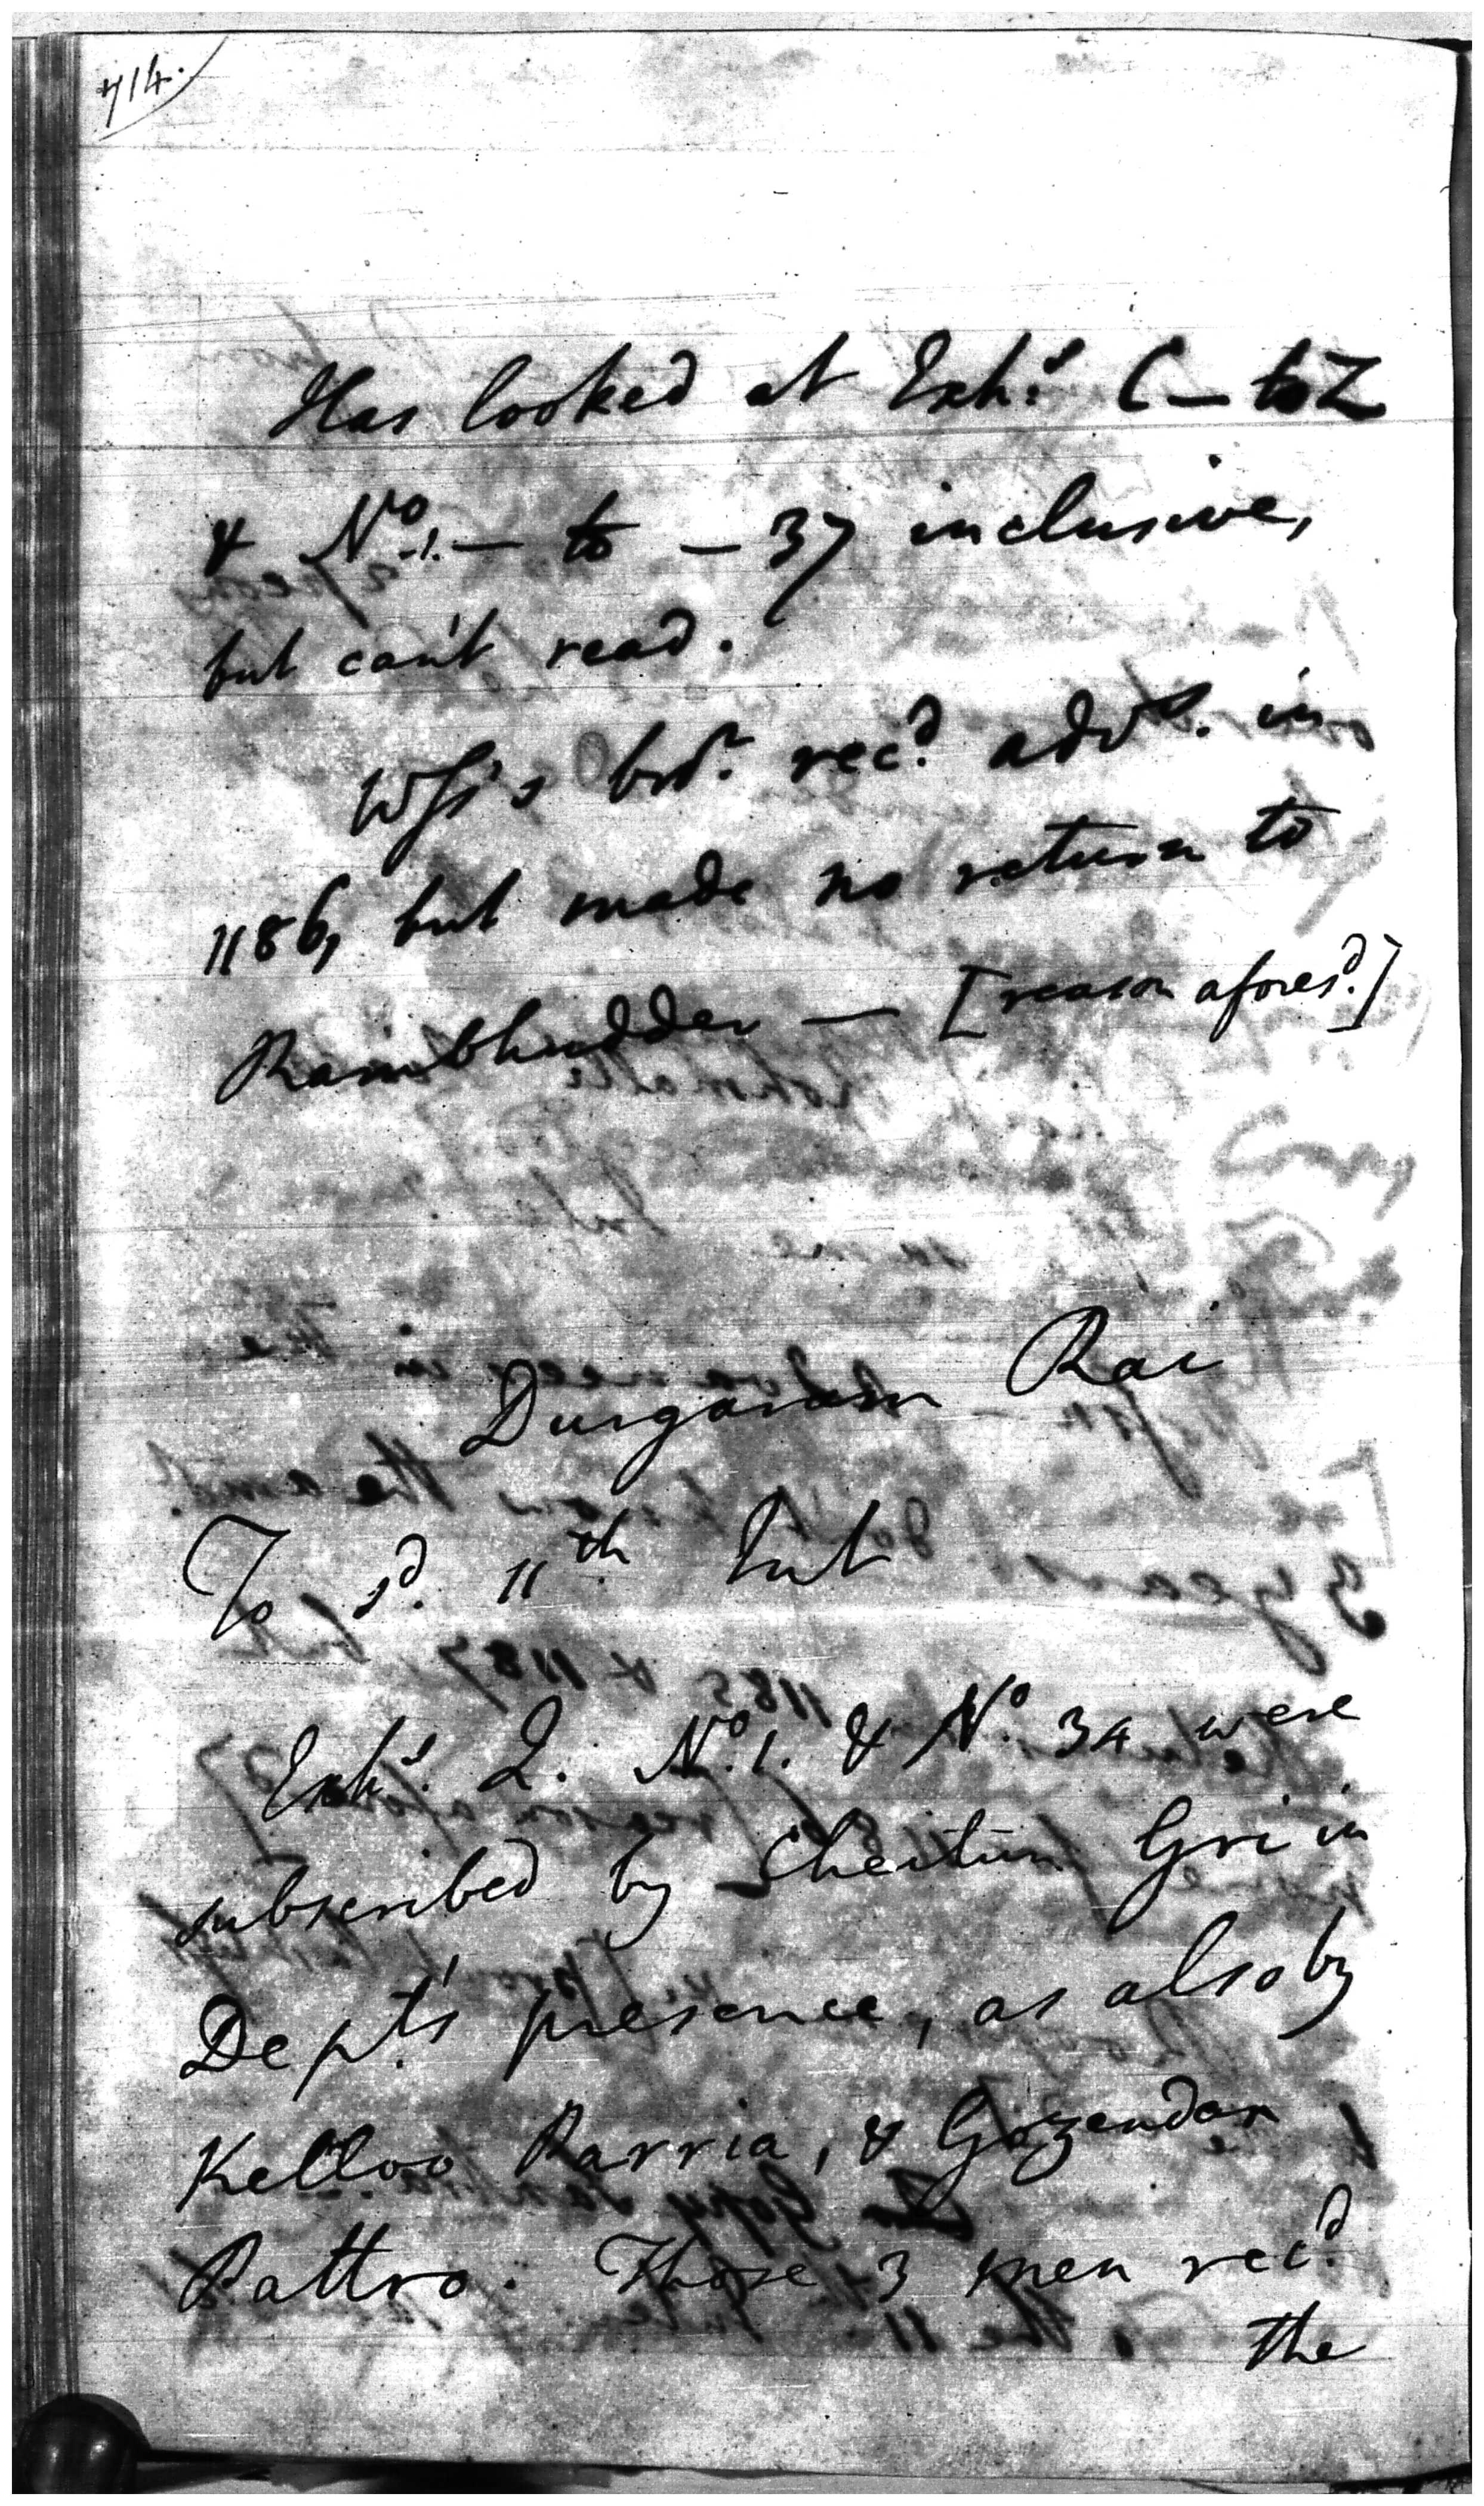 714.
Has looked at Exh.s C — to Z
& No. 1. — to — 37 inclusive,
but can't read.
Wss's bror. rec.d adv.s. in
1186, but made no return to
Rambhudder — [reason afores.d]
Durgaram Rai
To s.d. 11th Int
Exh.s. 2. No. 1. & No. 34 were
subscribed by Cheitun Gri in
Dept's presence, as also by
Kelloo Parria, & Gozendar
Pattro. Those 3 men rec.d
the